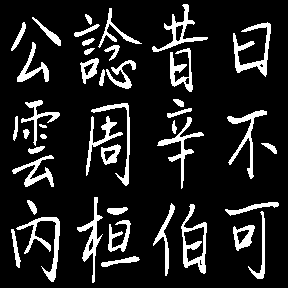 曰不可
昔辛伯
諗周桓
公雲內